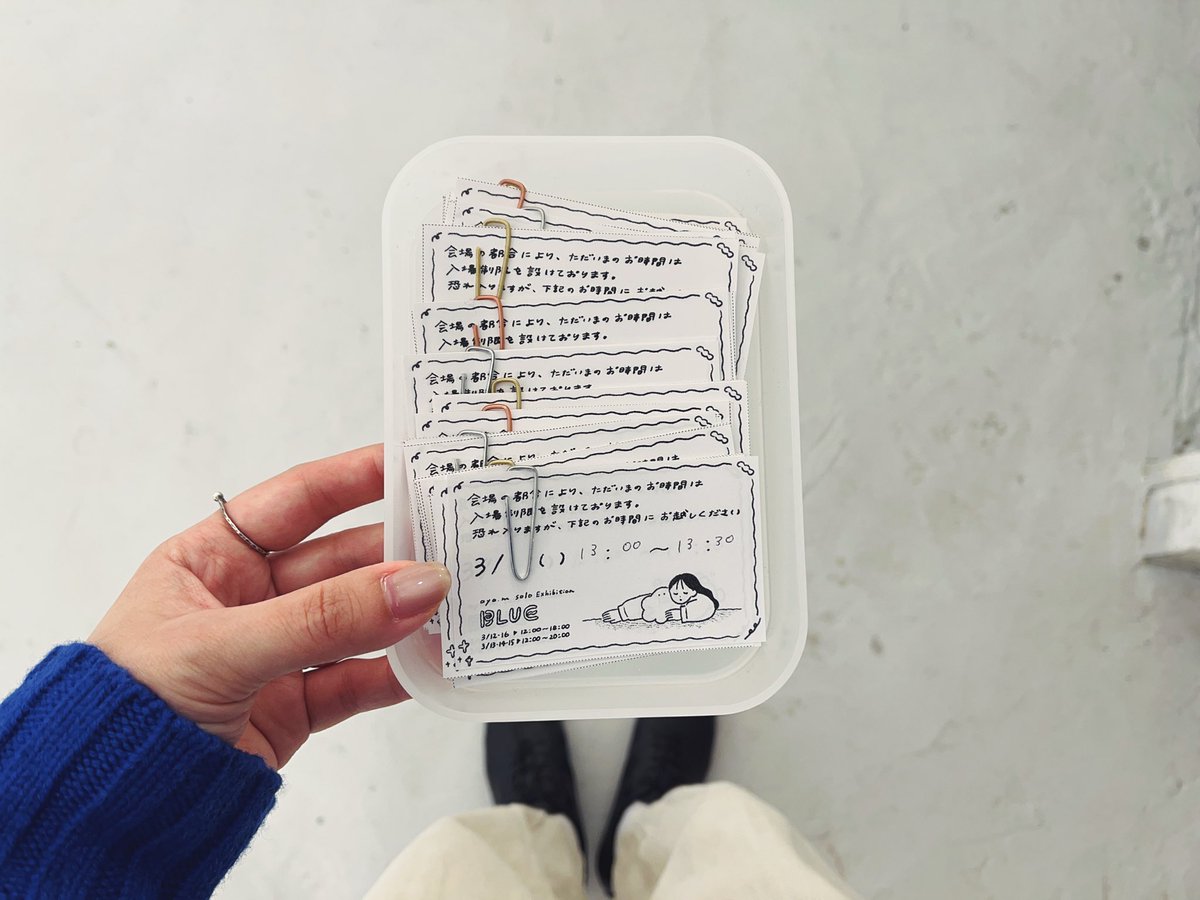 会場の都合により、ただいまのお時間は
入場制限を設けております。
恐れ入りますが、下記のお時間に
会場の都合により、ただいまのお時間は
入場制限を設けております。
会場の都合により、ただいまのお時間は
入場制限を設けております
会場の都合により、ただいまのお時間は
会場の都合により、ただいまのお時間は
入場制限を設けております。
恐れ入りますが、下記のお時間に お越しください
3/ ( ) 13:00～13:30
aya.m solo Exhibition
BLUE
3/12・16▶12:00～18:00
3/13・14・15▶12:00～20:00